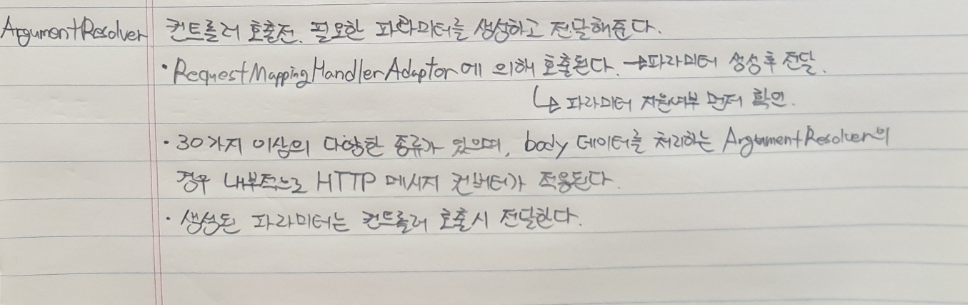 ArgumentResolver 컨트롤러 호출전. 필요한 파라미터를 생성하고 전달해준다.
· RequestMappingHandlerAdaptor에 의해 호출된다. →파라미터 생성후 전달.
↳ 파라미터 지원여부 먼저 확인.
· 30가지 이상의 다양한 종류가 있으며, body 데이터를 처리하는 ArgumentResolver의
경우 내부적으로 HTTP 메시지 컨버터가 적용된다.
· 생성된 파라미터는 컨트롤러 호출시 전달한다.